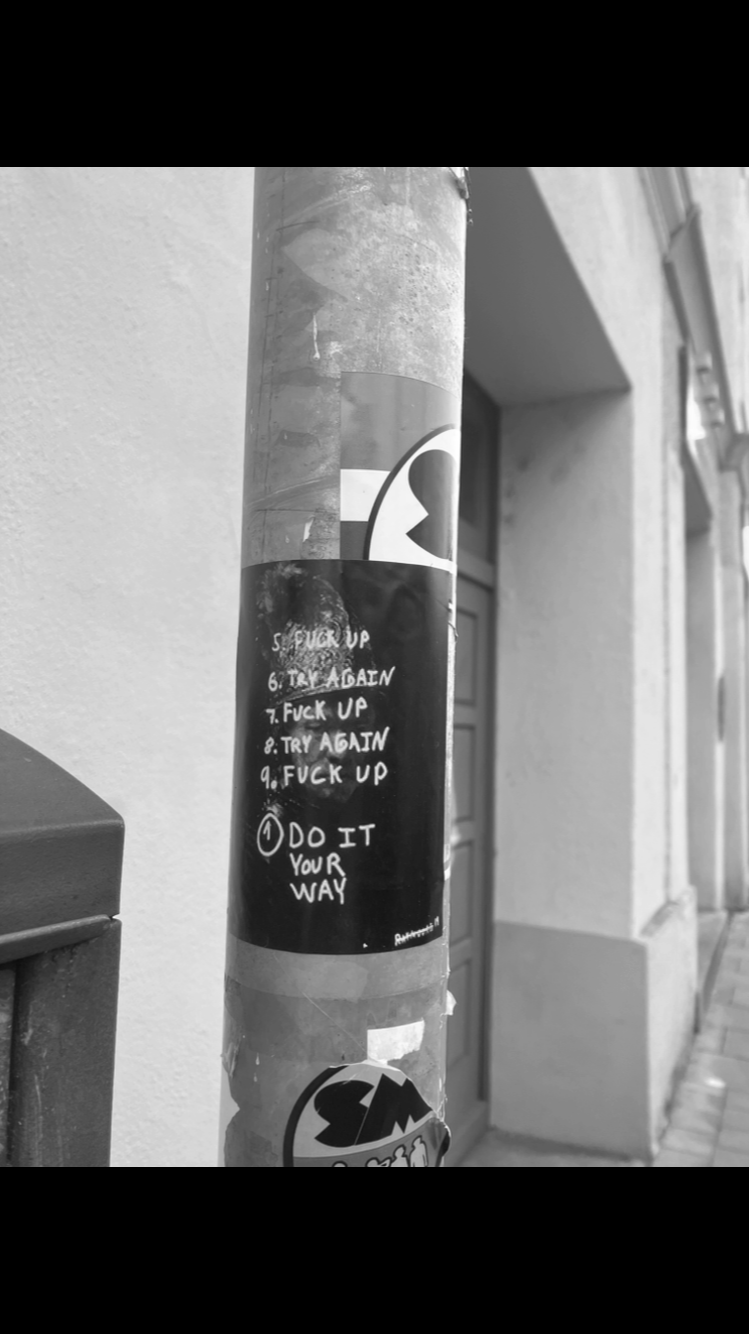 5. FUCK UP
6. TRY AGAIN
7. FUCK UP
8: TRY AGAIN
9. FUCK UP
1 DO IT
YOUR
WAY
SM